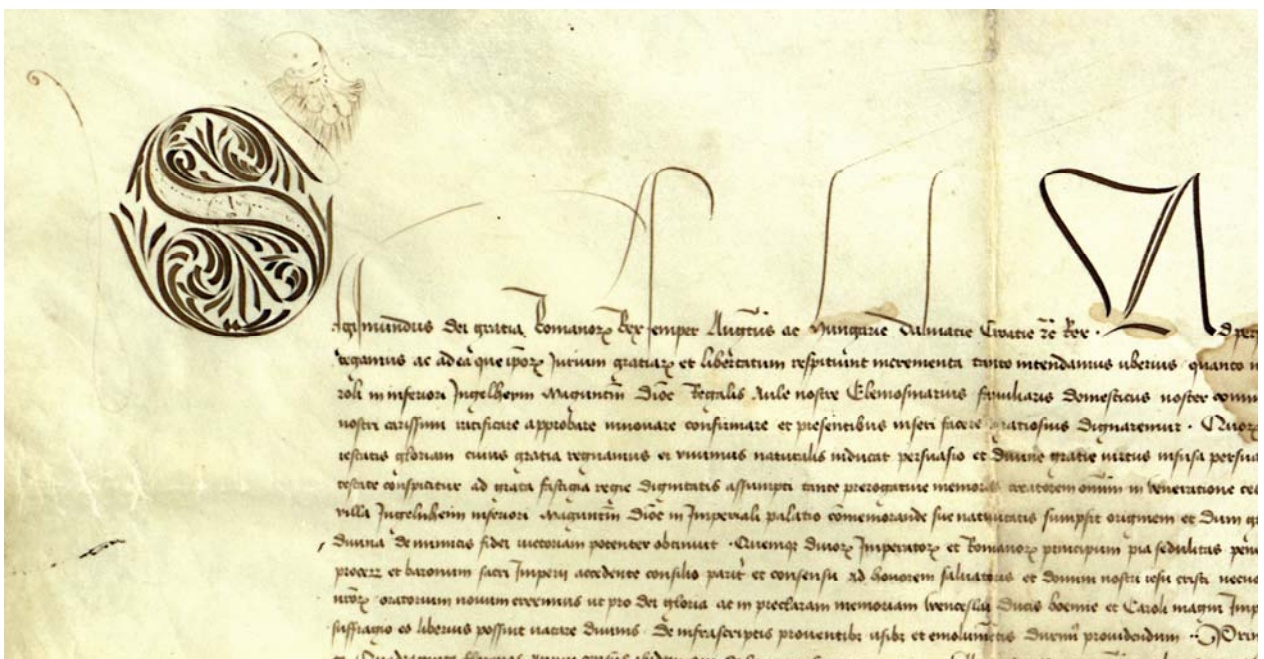 Sigismundus dei gratia Romanorꝝ Rex semper Augustus ac Hungarie Dalmatie Croatie ꝛc̄ Rex · Ad per
regamus ac ad ea que ip̄orꝝ Jurium gratiarꝝ et libertatum respiciunt incrementa tanto intendamus uberius quanto
roli in inferiori Jngelheim Maguntin̄ Dioc̄ Regalis Aule nostre Elemosinarius familiaris domesticus noster
nostri carissimi ratificare approbare innovare confirmare et presentibus inseri facere gratiosius dignaremur · Quorꝝ
iestatis gloriam cuius gratia regnamus et vivimus naturalis inducat persuasio et divine gratie virtus infusa persua
testate conspicitur ad grata fastigia regie dignitatis assumpti tante prerogative memores creatorem omium in veneratione
villa Jngelnheim inferiori Maguntin̄ Dioc̄ in Jmperiali palatio com̄emorande sue nativitatis sumpsit originem et dum
divina de inimicis fidei victoriam potenter obtinuit · Quemqꝫ divorꝝ Jmperatorꝝ et Romanorꝝ principum pia sedulitas
procerꝝ et baronum sacri Jmperii accedente consilio parit̄ et consensu ad honorem salvatoris et domini nostri iesu cristi
oratorium novum ereximus ut pro dei gloria ac in preclaram memoriam Wenceslai Ducis boemie et Caroli magni Jmp
suffragio eo liberius possint vacare divinis · De infrascriptis proventibꝫ usibꝫ et emolumentis providendum ·
et Quadraginta